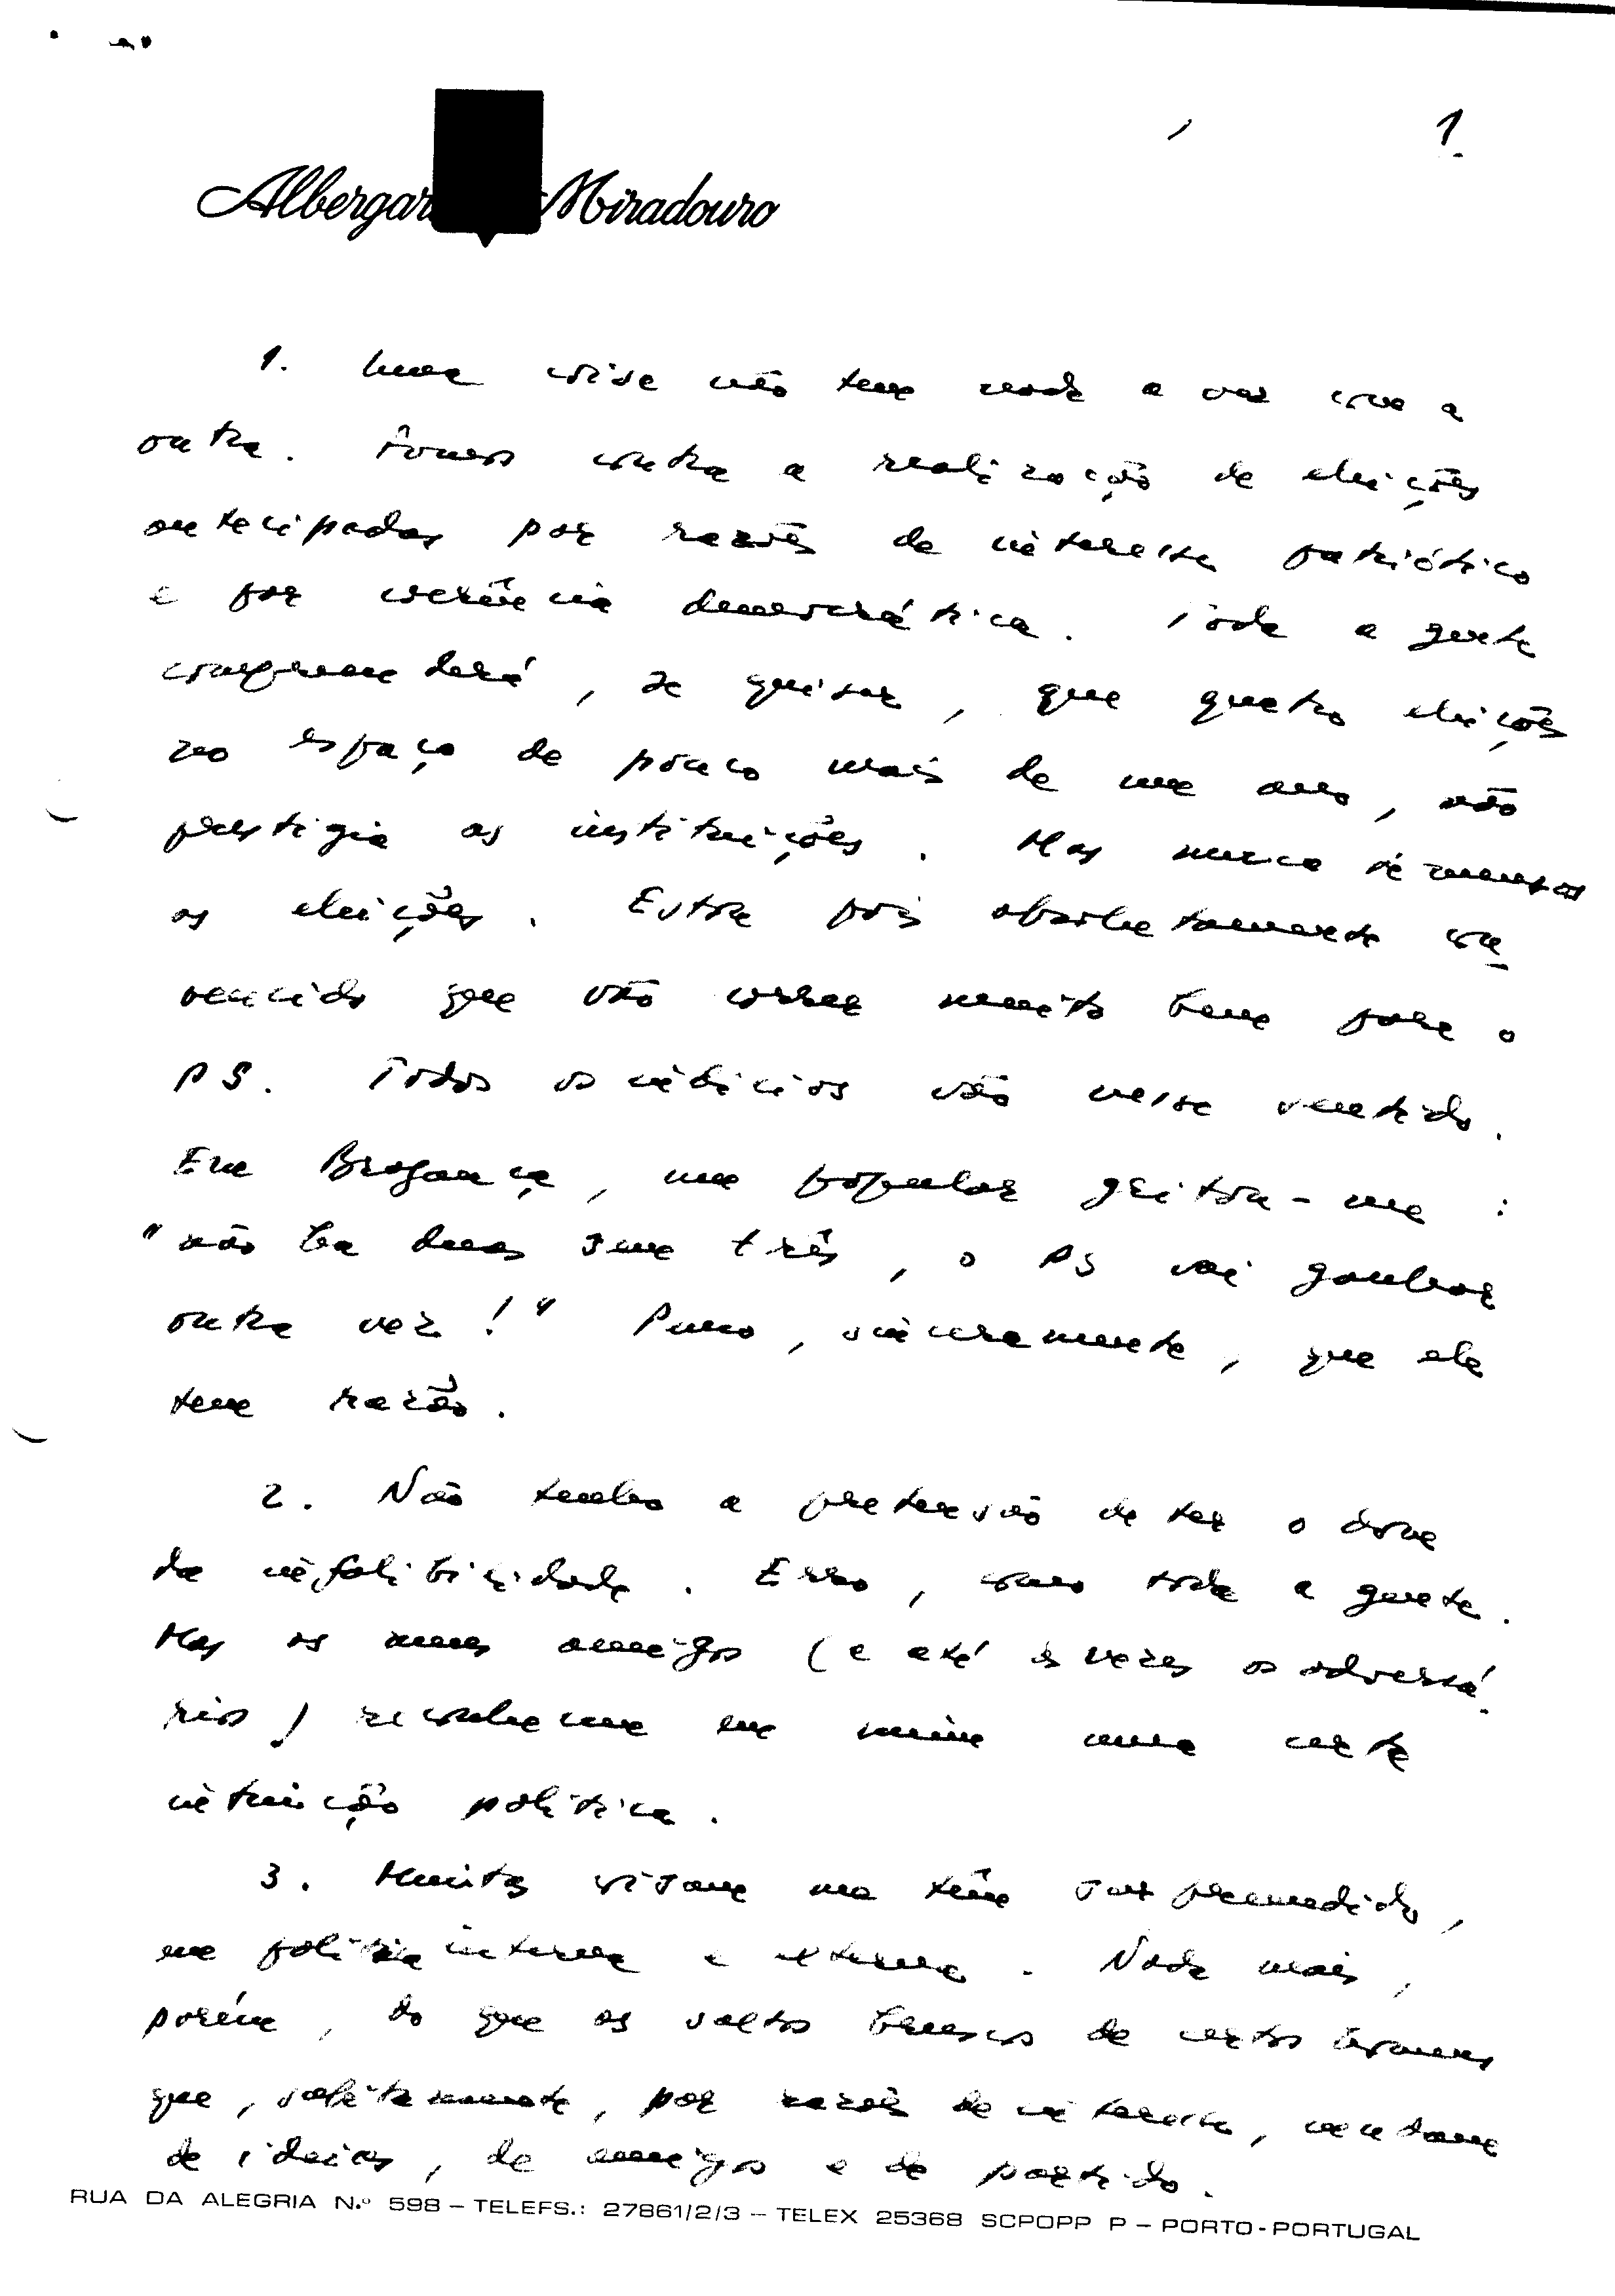 1.
Albergar Miradouro
1. Uma crise não tem nada a ver com a
outra. Fomos contra a realização de eleições
antecipadas por razões de interesse patriótico
e por coerência democrática. Toda a gente
compreenderá, se quiser, que quatro eleições
no espaço de pouco mais de um ano, não
prestigia as instituições. Mas nunca
as eleições. Estou pois absolutamente con-
vencido que vão correr muito bem para o
PS. Todos os indícios vão nesse sentido.
Em Bragança, um popular gritou-me:
"não há duas sem três, o PS vai ganhar
outra vez!" Penso, sinceramente, que ele
tem razão.
2. Não tenho a pretensão de ter o dom
da infalibilidade. Erro, como toda a gente.
Mas os meus amigos (e até às vezes os adversá-
rios) reconhecem em mim uma certa
intuição política.
3. Muitas coisas me têm surpreendido,
em política interna e externa. Nada mais,
porém, do que os saltos bruscos de certos homens
que, subitamente, por razões de interesse, mudam
de ideias, de amigos e de partido.
RUA DA ALEGRIA N.º 598 – TELEFS.: 27861/2/3 – TELEX 25368 SCPOPP P – PORTO-PORTUGAL